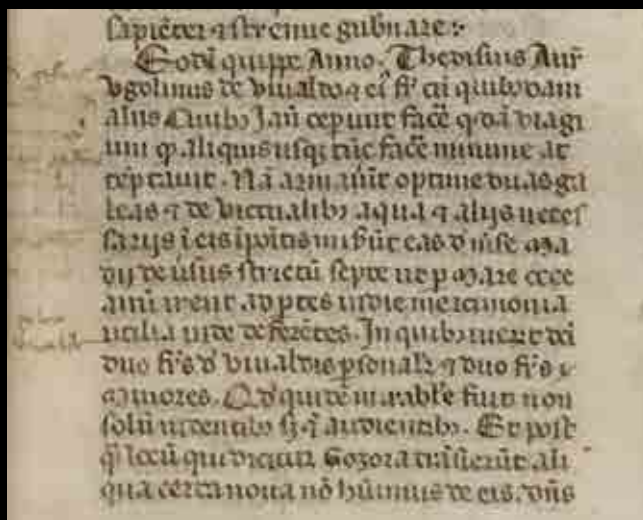 sapiēter ⁊ strenue gubnare:
Eodē quippe Anno, Thedisius Aur̄
vgolinus de viualdo ⁊ eī fr̄ cū quibusdam
aliis Ciuibȝ Jan̄ cepunt facē qḋā viagi
um qḋ aliquis usqȝ tūc facē minime at
tēptauit. Nā armaūt optime duas ga
leas ⁊ de victualibȝ aqua ⁊ alijs neces
sarijs ī eis ipōitis miserūt eas ḋ mēse ma
dij de ūsus strictū septe ut p mare occe
anū irent ad ptes indie mercimonia
utilia inde deferētes. In quibȝ iuerūt dc̄i
duo fr̄s ḋ viualdis psonalr̄ ⁊ duo fr̄s
mīores. Qḋ quidē mirabile fuit non
solū uidentibȝ sȝ ⁊ audientibȝ. Et postꝗ̄
locū qui dicitur Gozora trāsierūt ali
qua certa noua nō hūimus de eis. dn̄s